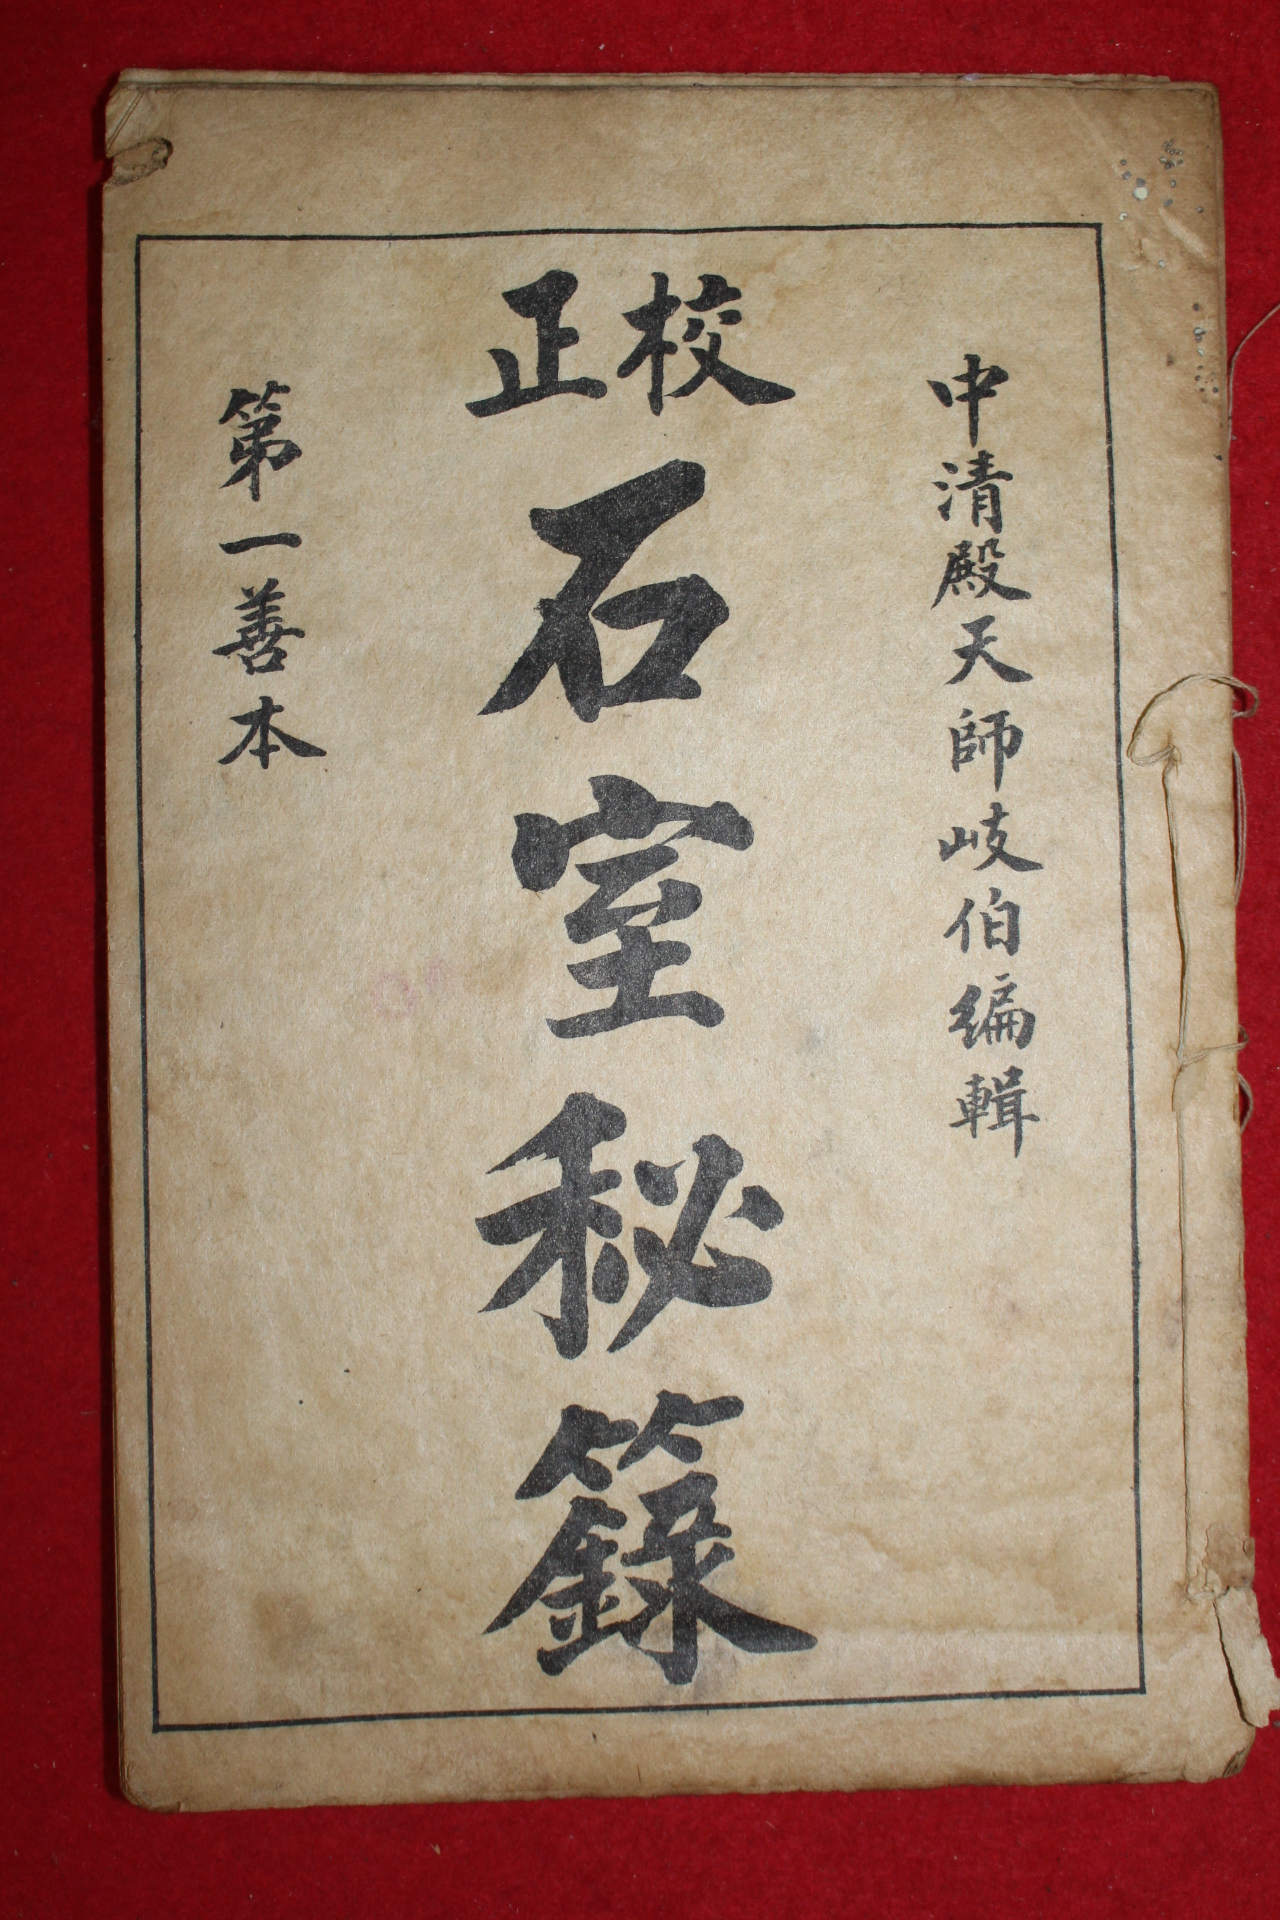 中清殿天師岐伯編輯
校正
石室秘籙
第一善本